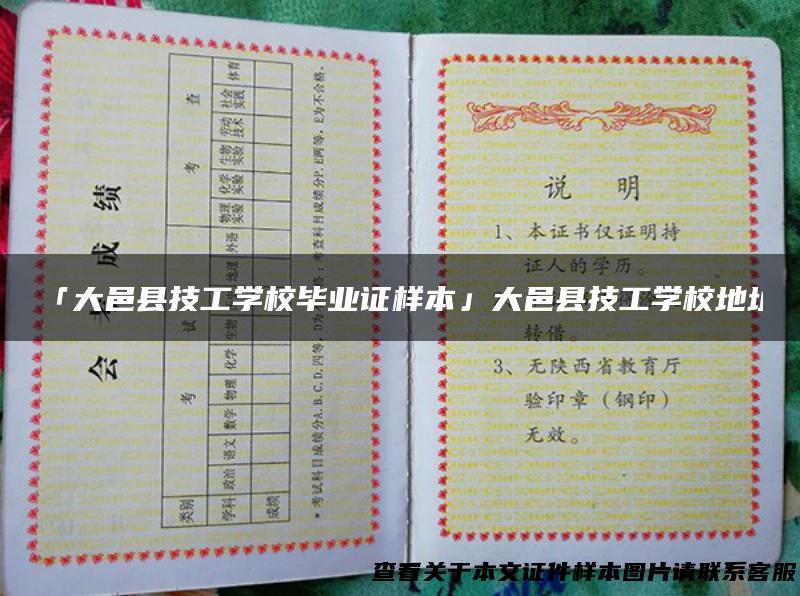 会考成绩
类别 考 试 考 查
学科 政治 语文 数学 物理 化学 生物 地理 外语 物理实验 化学实验 生物实验 劳动技术 社会实践 体育
成绩
*考试科目成绩分A.B.C.D.四等,D为不合格;考查科目成绩分P、E两等,E为不合格。
说 明
1、本证书仅证明持
证人的学历。
「大邑县技工学校毕业证样本」大邑县技工学校地址
转借。
3、无陕西省教育厅
验印章（钢印）
无效。
查看关于本文证件样本图片请联系客服